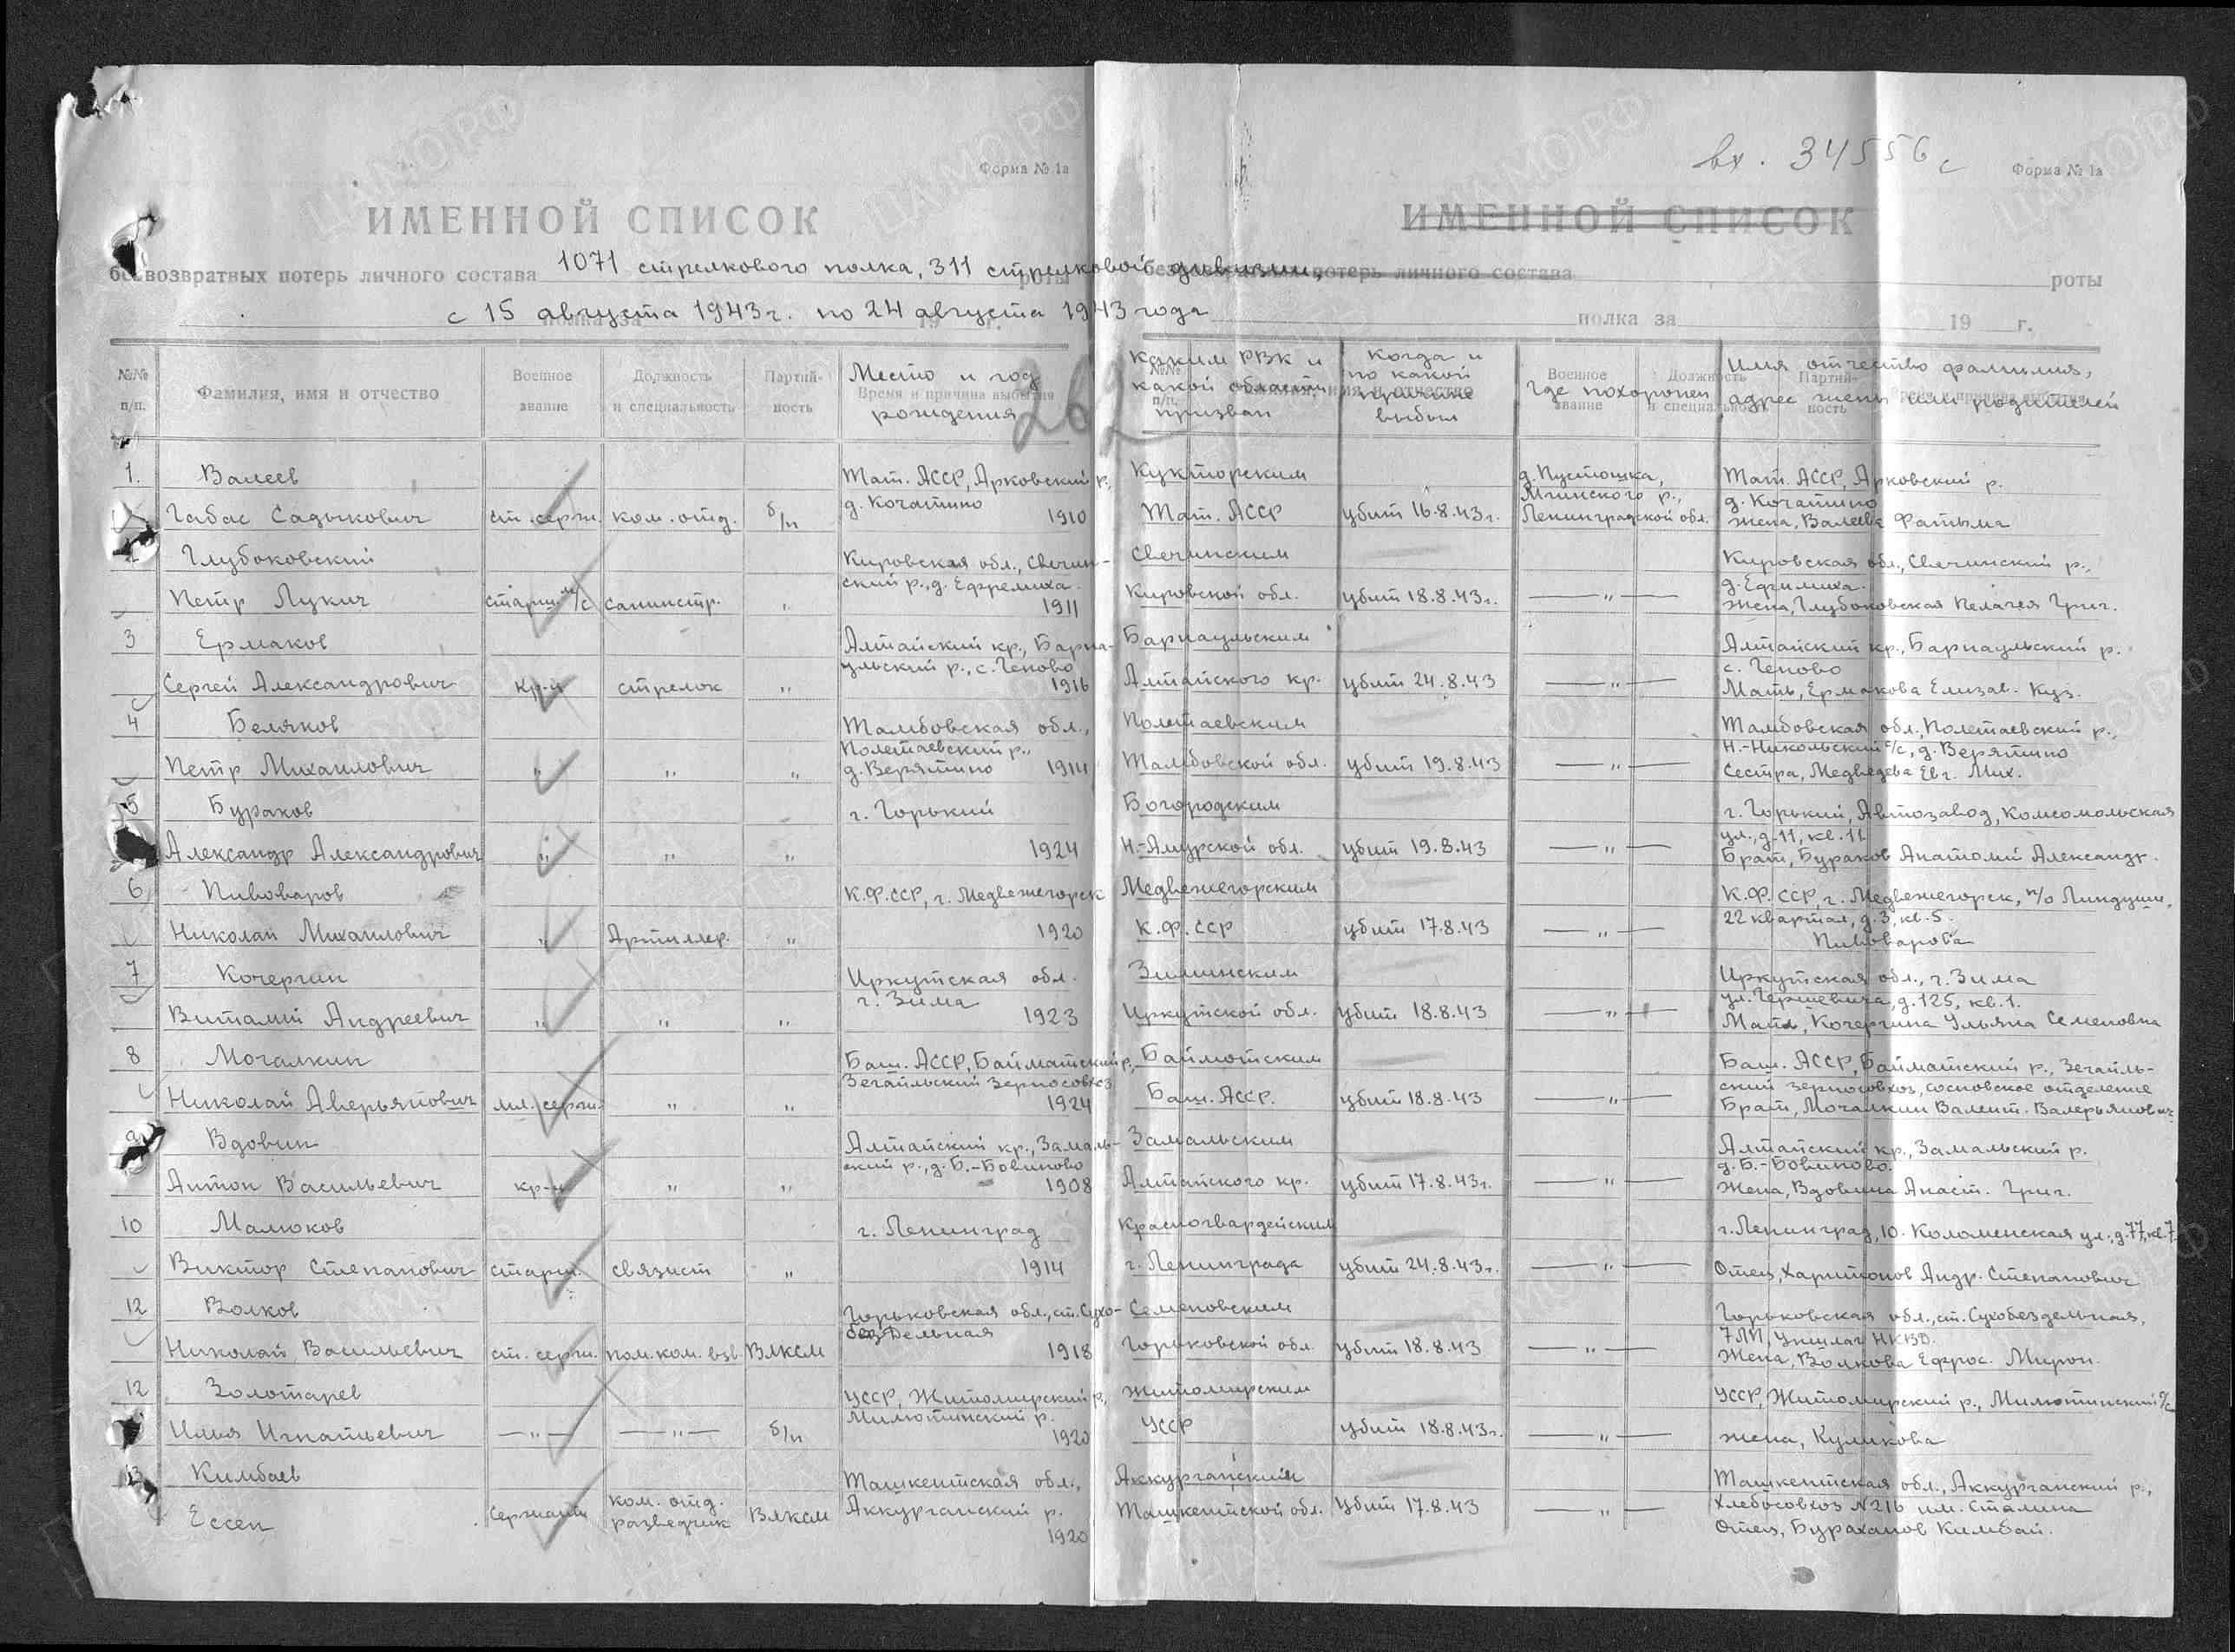 вх. 34556с
Форма № 1а
Форма № 1а
ИМЕННОЙ СПИСОК
ИМЕННОЙ СПИСОК
безвозвратных потерь личного состава 1071 стрелкового полка, 311 стрелковой дивизии, роты
безвозвратных потерь личного состава роты
с 15 августа 1943 г. по 24 августа 1943 года
полка за 19 г.
полка за 19 г.
262
№№ п/п. Фамилия, имя и отчество Военное звание Должность и специальность Партийность Время и причина выбытия Место и год рождения
Каким РВК и какой области призван Когда и по какой причине выбыл Где похоронен Имя отчество фамилия, адрес жены или родителей
№№ п/п. Фамилия, имя и отчество Военное звание Должность и специальность Партийность Время и причина выбытия
1. Валеев Тат. АССР, Арковский р., Кукморским д. Пустошка, Тат. АССР, Арковский р.
д. Кочатино Мгинского р., д. Кочатино
Габас Садыкович ст. серж. ком. отд. б/п 1910 Тат. АССР убит 16.8.43г. Ленинградской обл. жена, Валеева Фатыма
2 Глубоковский Кировская обл., Свечин- Свечинским Кировская обл., Свечинский р.,
ский р., д. Ефремиха д. Ефимиха.
Петр Лукич старш. м/с санинстр. " 1911 Кировской обл. убит 18.8.43г. — " — жена, Глубоковская Пелагея Григ.
3 Ермаков Алтайский кр., Барна- Барнаульским Алтайский кр., Барнаульский р.
ульский р., с. Геново с. Геново
Сергей Александрович кр-ц стрелок " 1916 Алтайского кр. убит 24.8.43 — " — Мать, Ермакова Елизав. Куз.
4 Беляков Тамбовская обл., Полетаевским Тамбовская обл., Полетаевский р.,
Полетаевский р., Н.-Никольский с/с, д. Верятино
Петр Михаилович " " " д. Верятино 1914 Тамбовской обл. убит 19.8.43 — " — Сестра, Медведева Евг. Мих.
5 Бураков г. Горький Богородским г. Горький, Автозавод, Комсомольская
ул., д. 11, кв. 11
Александр Александрович " " " 1924 Н.-Амурской обл. убит 19.8.43 — " — Брат, Бураков Анатолий Александр.
6 Пивоваров К.Ф.ССР, г. Медвежегорск Медвежегорским К.Ф.ССР, г. Медвежегорск, п/о Линдуши,
22 квартал, д. 3, кв. 5.
Николай Михаилович " Артиллер. " 1920 К.Ф.ССР убит 17.8.43 — " — Пивоварова
7 Кочергин Иркутская обл. Зиминским Иркутская обл., г. Зима
г. Зима ул. Гершевича, д. 125, кв. 1.
Виталий Андреевич " " " 1923 Иркутской обл. убит 18.8.43 — " — Мать, Кочергина Ульяна Семеновна
8 Мочалкин Баш. АССР, Баймакский р., Баймакским Баш. АССР, Баймакский р., Зегаиль-
Зегаильский Зерносовхоз ский зерносовхоз, сосновское отделение
Николай Аверьянович мл. серж. " " 1924 Баш. АССР. убит 18.8.43 — " — Брат, Мочалкин Валент. Валерьянович
9 Вдовин Алтайский кр., Замаль- Замальским Алтайский кр., Замальский р.
ский р., д. Б.-Бовиново д. Б.-Бовиново.
Антон Васильевич кр-ц " " 1908 Алтайского кр. убит 17.8.43г. — " — Жена, Вдовина Анаст. Григ.
10 Малюков г. Ленинград Красногвардейским г. Ленинград, 10. Коломенская ул., д. 77, кв. 7
Виктор Степанович старш. связист " 1914 г. Ленинграда убит 24.8.43г. — " — Отец, Харитонов Андр. Степанович
12 Волков Горьковская обл., ст. Сухо- Семеновским Горьковская обл., ст. Сухобезделькая,
без Дельная 7 ЛП, Унжлаг НКВД.
Николай Васильевич ст. серж. пом. ком. взв. ВЛКСМ 1918 Горьковской обл. убит 18.8.43 — " — Жена, Волкова Ефрос. Мирон.
12 Золотарев УССР, Житомирский р., Житомирским УССР, Житомирский р., Милютинский с/с
Милютинский р.
Илья Игнатьевич — " — — " — б/п 1920 УССР убит 18.8.43г. — " — жена, Куликова
13 Кимбаев Ташкентская обл., Аккурганским Ташкентская обл., Аккурганский р.,
Аккурганский р. Хлебосовхоз № 216 им. Сталина
Ессен Сержант ком. отд. разведчик ВЛКСМ 1920 Ташкентской обл. убит 17.8.43 — " — Отец, Бураханов Кимбай.